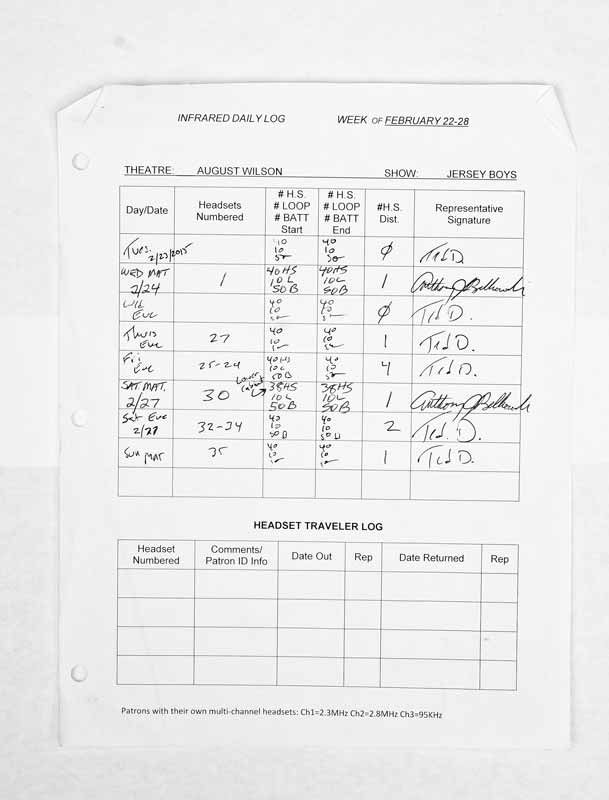 INFRARED DAILY LOG WEEK OF FEBRUARY 22-28
THEATRE: AUGUST WILSON SHOW: JERSEY BOYS
Day/Date
Headsets
Numbered
# H.S.
# LOOP
# BATT
Start
# H.S.
# LOOP
# BATT
End
#H.S.
Dist.
Representative
Signature
Tues.
2/23/2015
40
10
50
40
10
50
0
Ted D
WED MAT
2/24
1
40HS
10L
50B
40HS
10L
50B
1
Anthony J
Eve
40
10
50
40
10
50
0
Ted D.
Thurs
Eve
27
40
10
50
40
10
50
1
Ted D.
Fri
Eve
25-24
40HS
10L
50B
40
10
50
4
Ted D.
SAT MAT.
2/27
30
38HS
10L
50B
38HS
10L
50B
1
Anthony J
Sat Eve
32-34
40
10
50B
40
10
50B
2
Ted. D.
Sun MAT
35
40
10
50
40
10
50
1
Ted D.
HEADSET TRAVELER LOG
Headset
Numbered
Comments/
Patron ID Info
Date Out
Rep
Date Returned
Rep
Patrons with their own multi-channel headsets: Ch1=2.3MHz Ch2=2.8MHz Ch3=95KHz